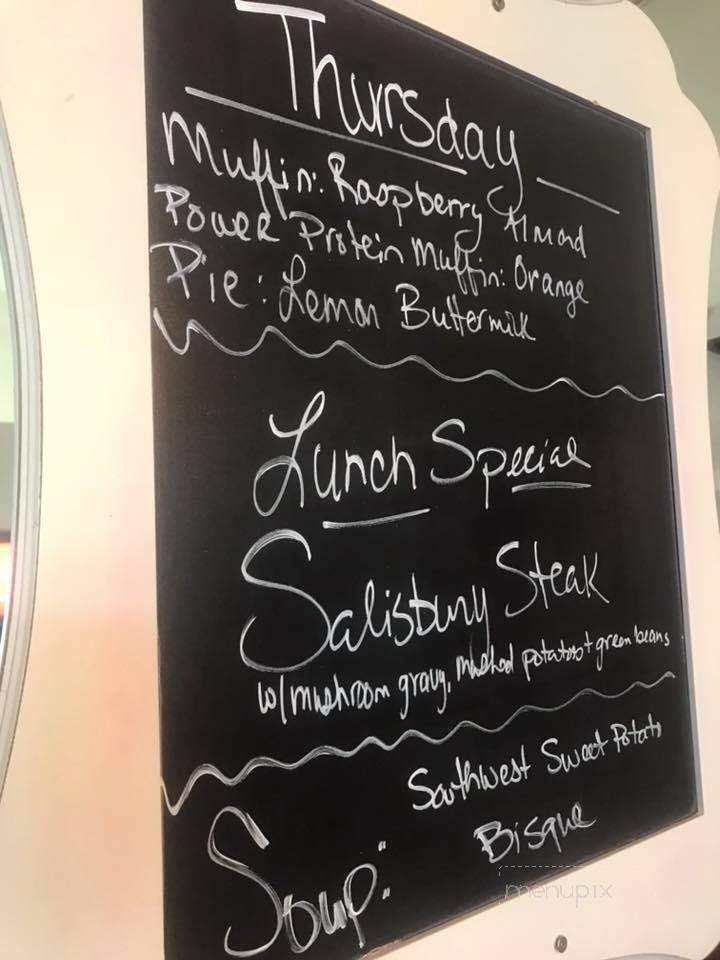 Thursday
Muffin: Raspberry Almond
Power Protein Muffin: Orange
Pie: Lemon Buttermilk
Lunch Special
Salisbury Steak
w/mushroom gravy, mashed potatoes + green beans
Southwest Sweet Potato
Bisque
Soup:
menupix